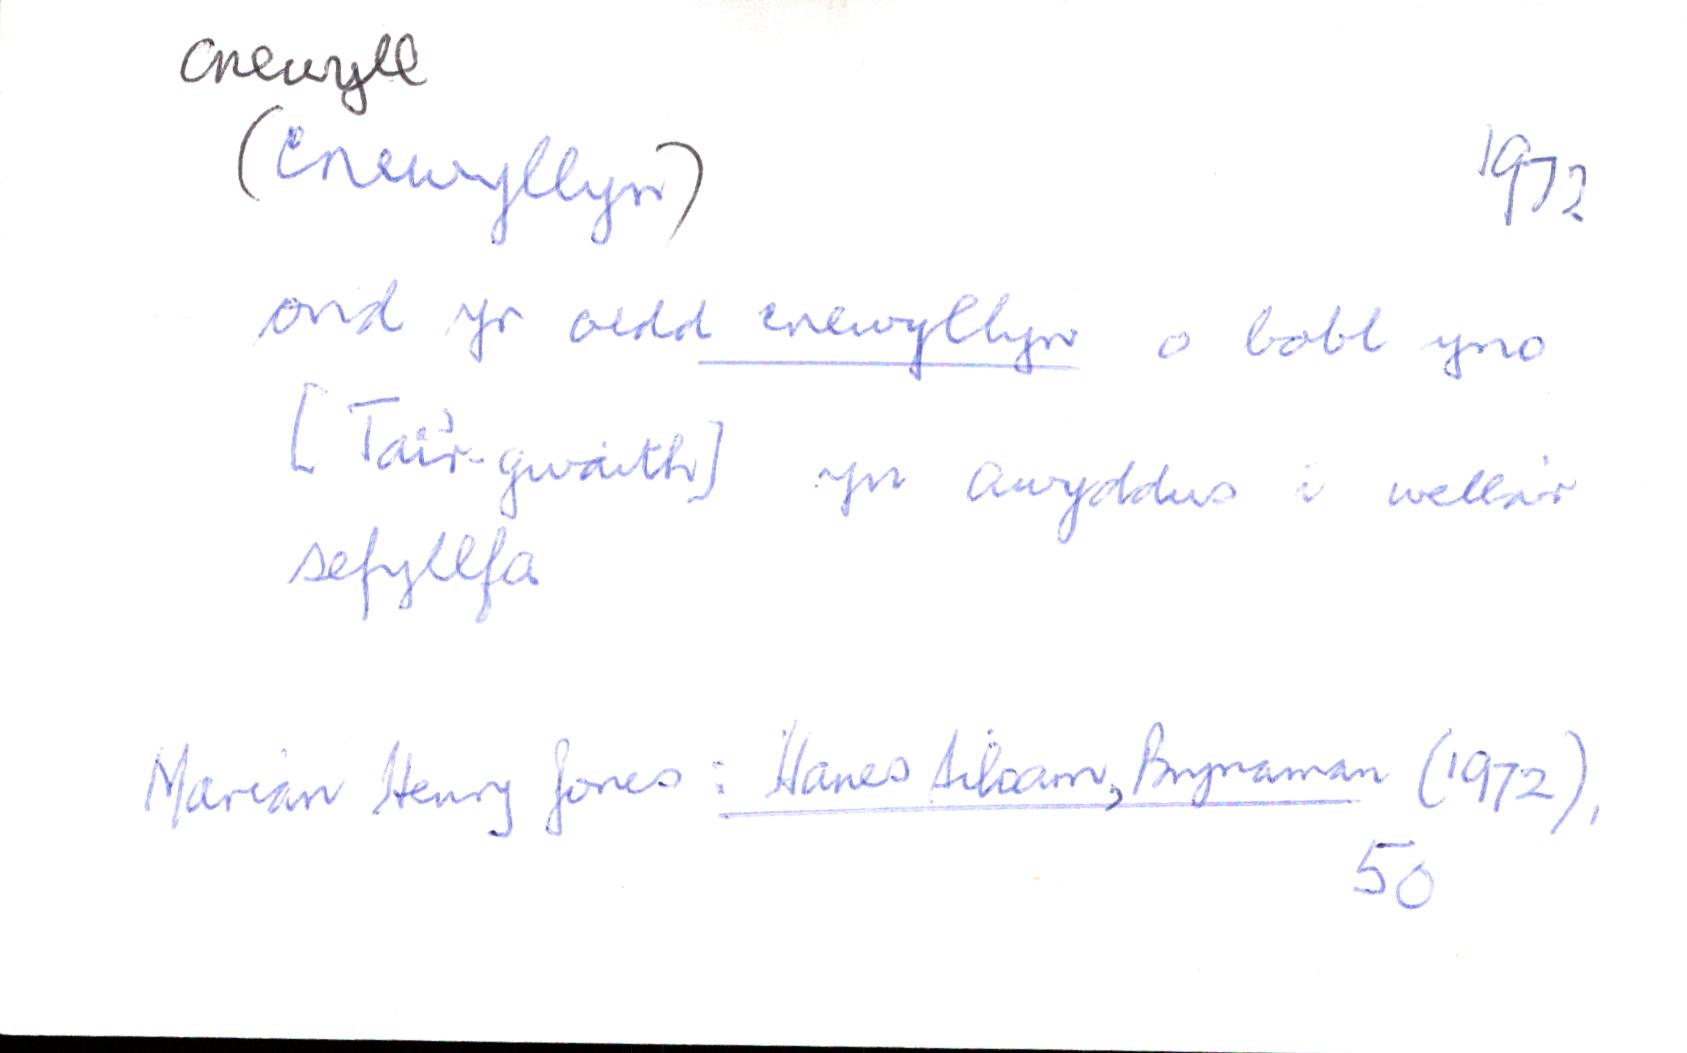 cnewyll
(cnewyllyn)
1972
ond yr oedd cnewyllyn o bobl yno
[Tai'r-gwaith] yn awyddus i wella'r
sefyllfa
Marian Henry Jones : Hanes Siloam, Brynaman (1972),
50